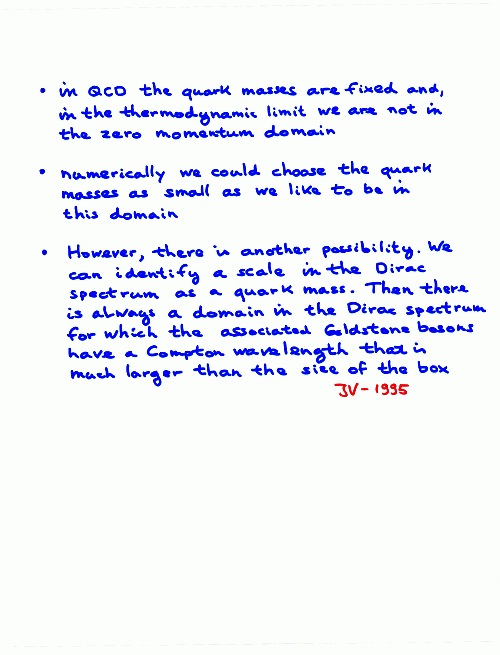 • in QCD the quark masses are fixed and,
in the thermodynamic limit we are not in
the zero momentum domain
• numerically we could choose the quark
masses as small as we like to be in
this domain
• However, there is another possibility. We
can identify a scale in the Dirac
spectrum as a quark mass. Then there
is always a domain in the Dirac spectrum
for which the associated Goldstone bosons
have a Compton wavelength that is
much larger than the size of the box
JV-1995